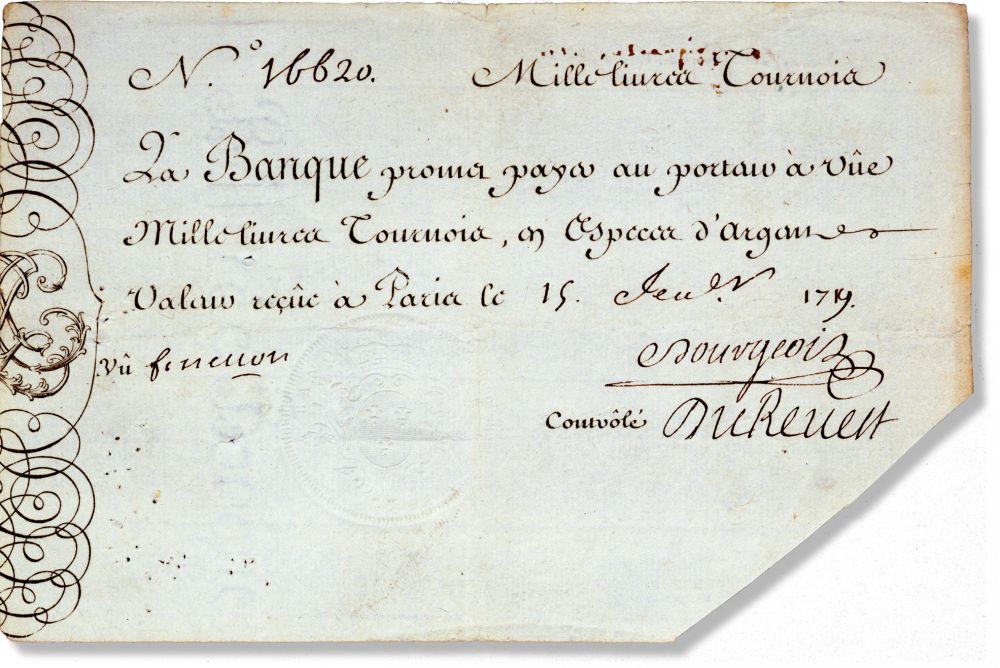 N.° 16620. Mille livres Tournois
La Banque promet payer au porteur à vûe
Mille livres Tournois, en Especes d'Argent
Valeur reçûe à Paris le 15. Jenv.r 1719.
vû fenellon Bourgeois
Controlé DuRevest